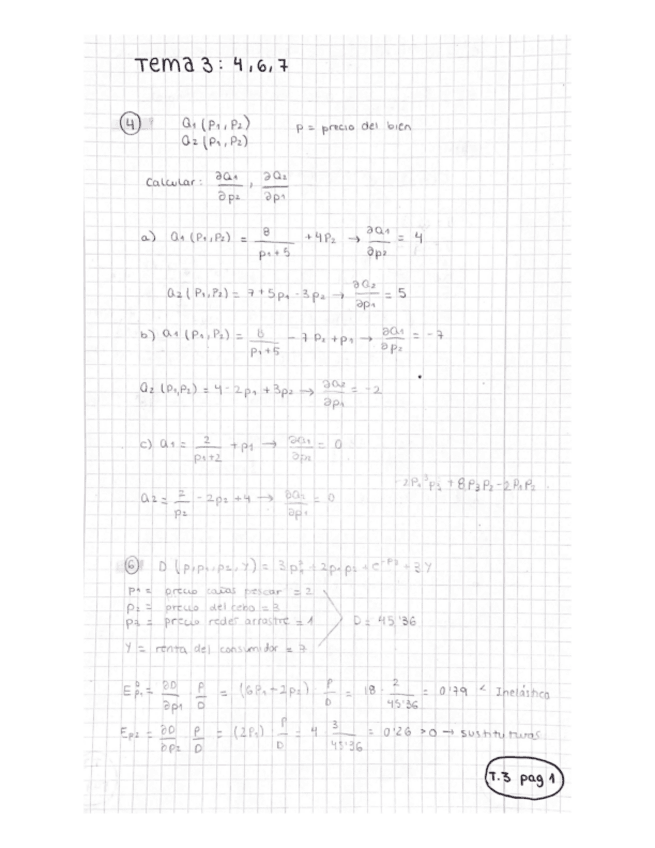 Tema 3: 4,6,7
④ Q₁ (P₁, P₂) P = precio del bien
Q₂ (P₁, P₂)
Calcular: ∂Q₁/∂p₂ , ∂Q₂/∂p₁
a) Q₁ (P₁, P₂) = 8/(p₁+5) + 4P₂ → ∂Q₁/∂p₂ = 4
Q₂ (P₁, P₂) = 7 + 5p₁ - 3p₂ → ∂Q₂/∂p₁ = 5
b) Q₁ (P₁, P₂) = 8/(p₁+5) - 7 P₂ + p₁ → ∂Q₁/∂p₂ = -7
Q₂ (P₁,P₂) = 4 - 2p₁ + 3p₂ → ∂Q₂/∂p₁ = -2
c) Q₁ = 2/(p₁+2) + p₁ → ∂Q₁/∂p₂ = 0
-2P₁³P₂ + 8P₃P₂ - 2P₁P₂
Q₂ = 2/p₂ - 2p₂ + 4 → ∂Q₂/∂p₁ = 0
⑥ D (p, p₁, p₂, Y) = 3p₁² + 2p₁p₂ + e^-p₃ + 3Y
p₁ = precio cañas pescar = 2
p₂ = precio del cebo = 3
p₃ = precio redes arrastre = 1 D = 45'36
Y = renta del consumidor = 7
E p₁ = ∂D/∂p₁ · P/D = (6P₁ + 2p₂) · P/D = 18 · 2/45'36 = 0'79 < Inelástica
Ep₂ = ∂D/∂p₂ · P/D = (2P₁) · P/D = 4 · 3/45'36 = 0'26 >0 → sustitutivas
T.3 pag 1